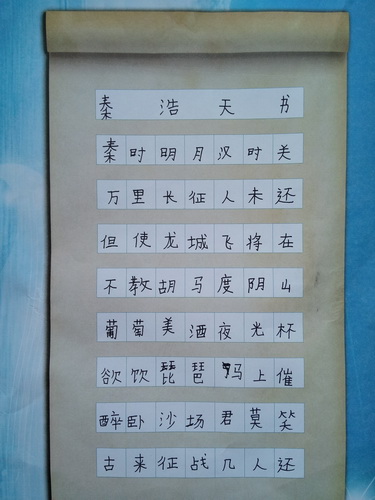 秦浩天书
秦时明月汉时关
万里长征人未还
但使龙城飞将在
不教胡马度阴山
葡萄美酒夜光杯
欲饮琵琶吗上催
醉卧沙场君莫笑
古来征战几人还